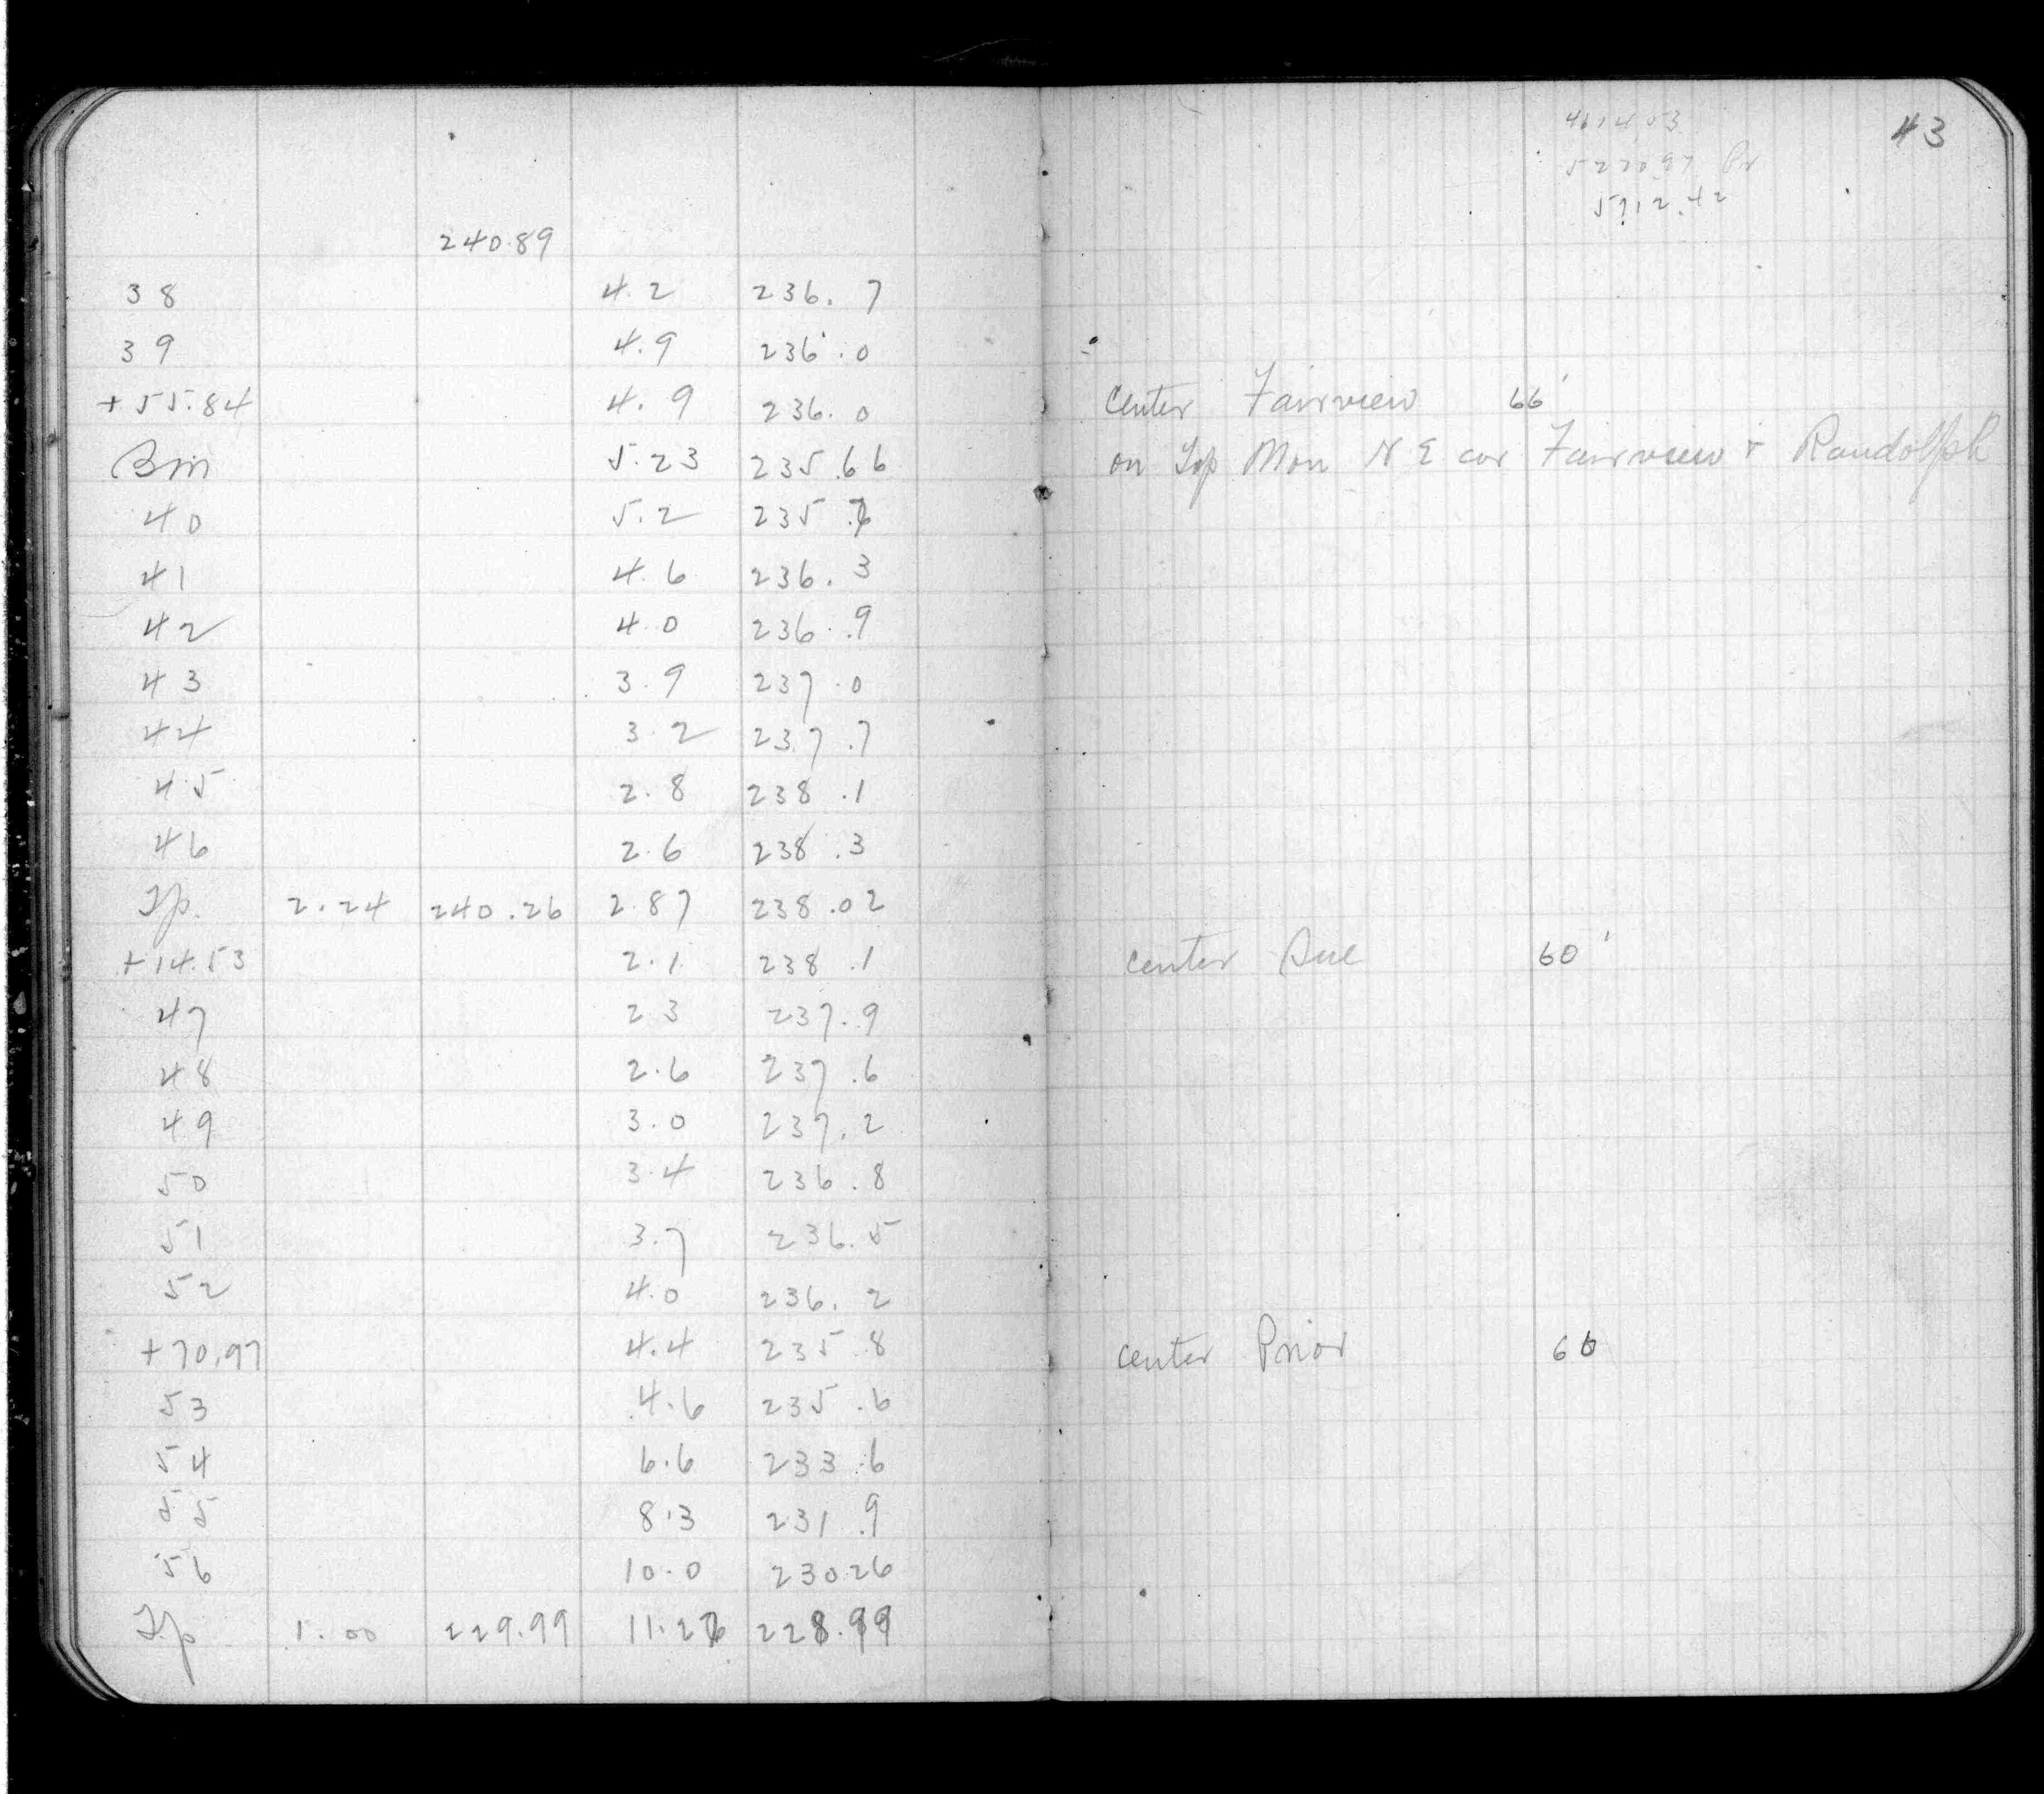 240.89
38 4.2 236.7
39 4.9 236.0
+55.84 4.9 236.0
Bm 5.23 235.66
40 5.2 235.7
41 4.6 236.3
42 4.0 236.9
43 3.9 237.0
44 3.2 237.7
45 2.8 238.1
46 2.6 238.3
Tp. 2.24 240.26 2.87 238.02
+14.53 2.1 238.1
47 2.3 237.9
48 2.6 237.6
49 3.0 237.2
50 3.4 236.8
51 3.7 236.5
52 4.0 236.2
+70.97 4.4 235.8
53 4.6 235.6
54 6.6 233.6
55 8.3 231.9
56 10.0 230.26
Tp 1.00 229.99 11.27 228.99
43
4614.53
5270.97 Pr
5712.42
center Fairview 66'
on Top Mon N E cor Fairview & Randolph
center Sue 60'
center Prior 66